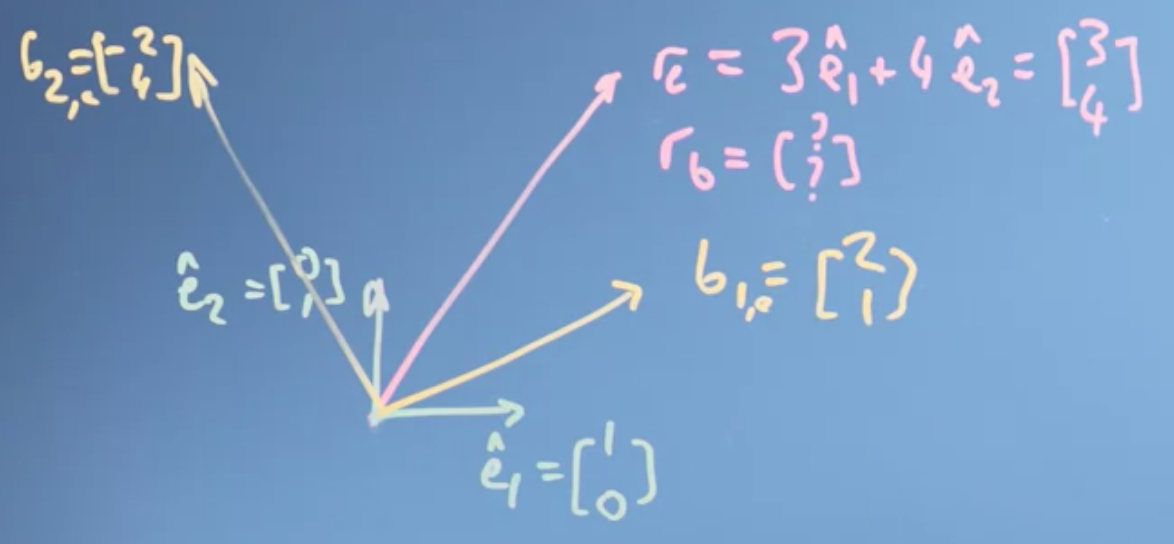 b₂,ₑ=[-2 4]
rₑ = 3ê₁+4ê₂ = [3 4]
r_b = [? ?]
ê₂ = [0 1]
b₁,ₑ= [2 1]
ê₁ = [1 0]